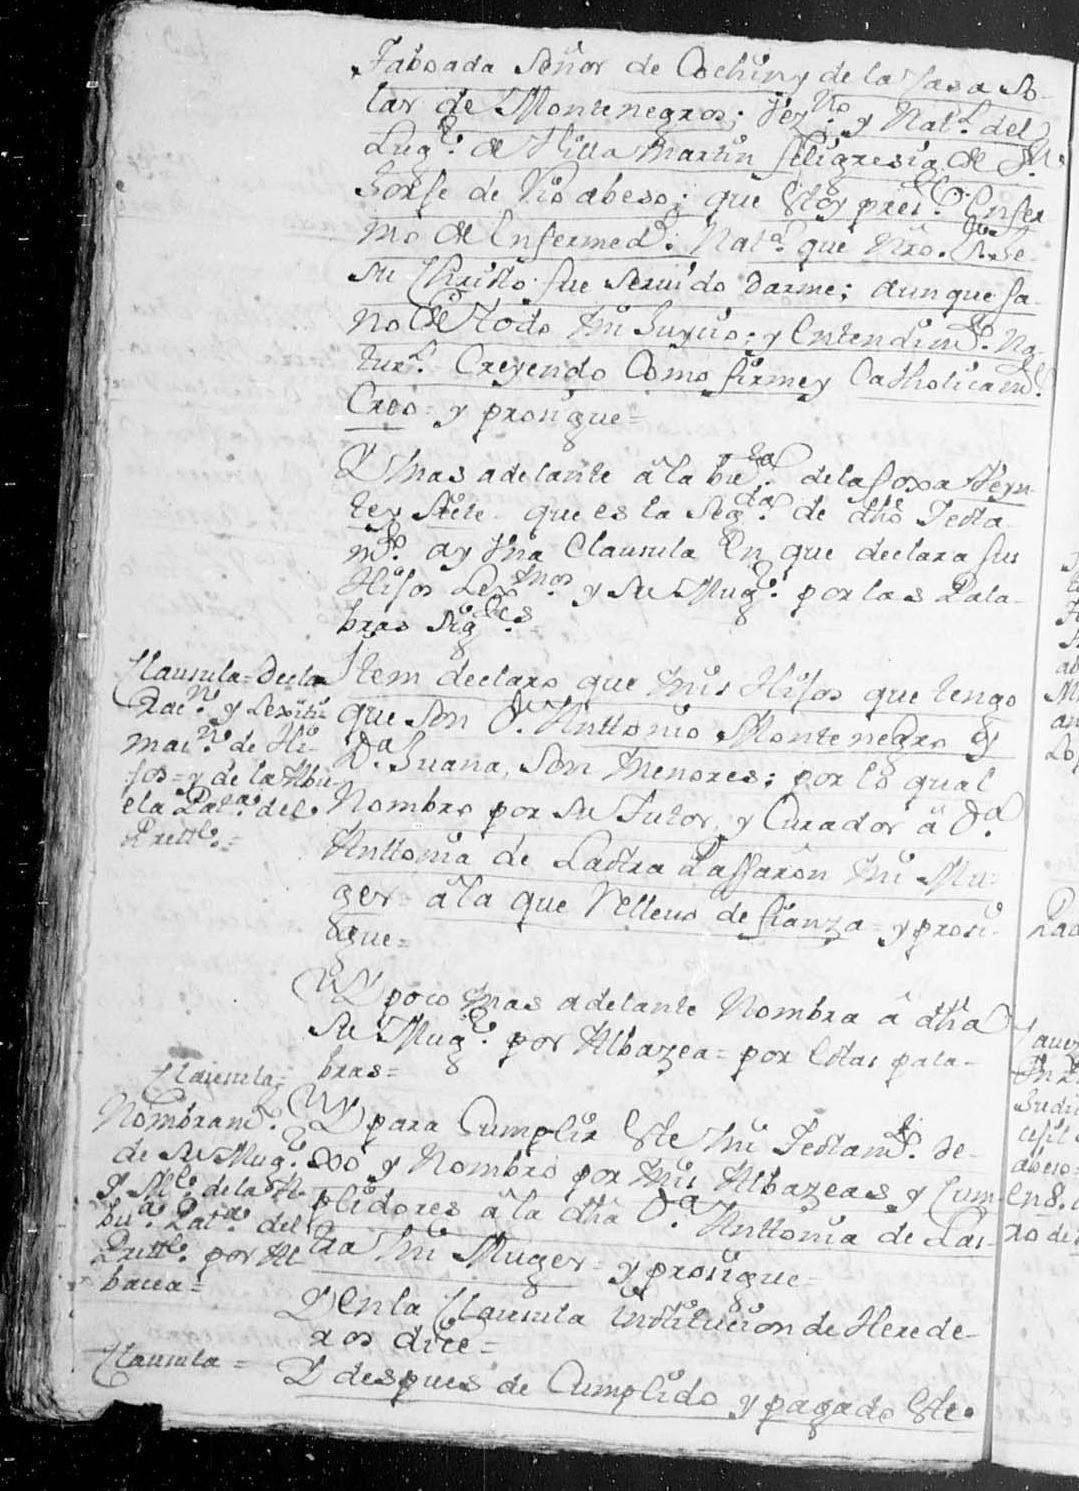 Taboada Señor de Cochiny de la Casa So-
lar de Montenegros; Vezno. y Natl. del
Lugr. de Villa Martin feligresia de Sn.
Jorse de Vioabeso; que estoy prete. Enfer
mo de Enfermedd. Nata. que Nro. Sr. Je-
su Christo fue seruido darme; aunque sa-
no de todo mi Juycio; y Entendimto. Na-
turl. Creyendo Como firme y Catholicamte.
Creo = y prosigue =
Y mas adelante â la buelta. de la foxa Veyn-
te y Siete que es la Segda. de dho Testa
mto. ay Vna Clausula En que declara sus
Hijos Lexmos. y Su Mugr. por las Pala-
bras Sigtes. =
Clausula = Decla
racn. y Lexiti-
macn. de Hi-
jos = y de la Abu-
ela Pata. del
Prette. =
Item declaro que mis Hijos que tengo
que Son Dn. Anttonio Montenegro y
Da. Juana, Son menores; por lo qual
Nombro por Su Tutor, y Curador â Da.
Anttonia de Lastra Passaron mi Mu-
ger = âla que Relleuo de fianza = y prosi-
gue =
Y poco mas adelante Nombra â dha
Su Mugr. por Albazea = por Estas pala-
bras =
Clausula =
Nombramto.
de Su Mugr.
y Me. de la A-
bua. Pata. del
Prette. por Al-
bacea =
Y para Cumplir Este mi Testamto. de-
xo y Nombro por mis Albazeas y Cum-
plidores â la dha Da. Anttonia de Las-
tra mi Muger = y prosigue =
Y en la Clausula institucion de Herede-
ros dice =
Clausula =
Y despues de Cumplido y pagado Este